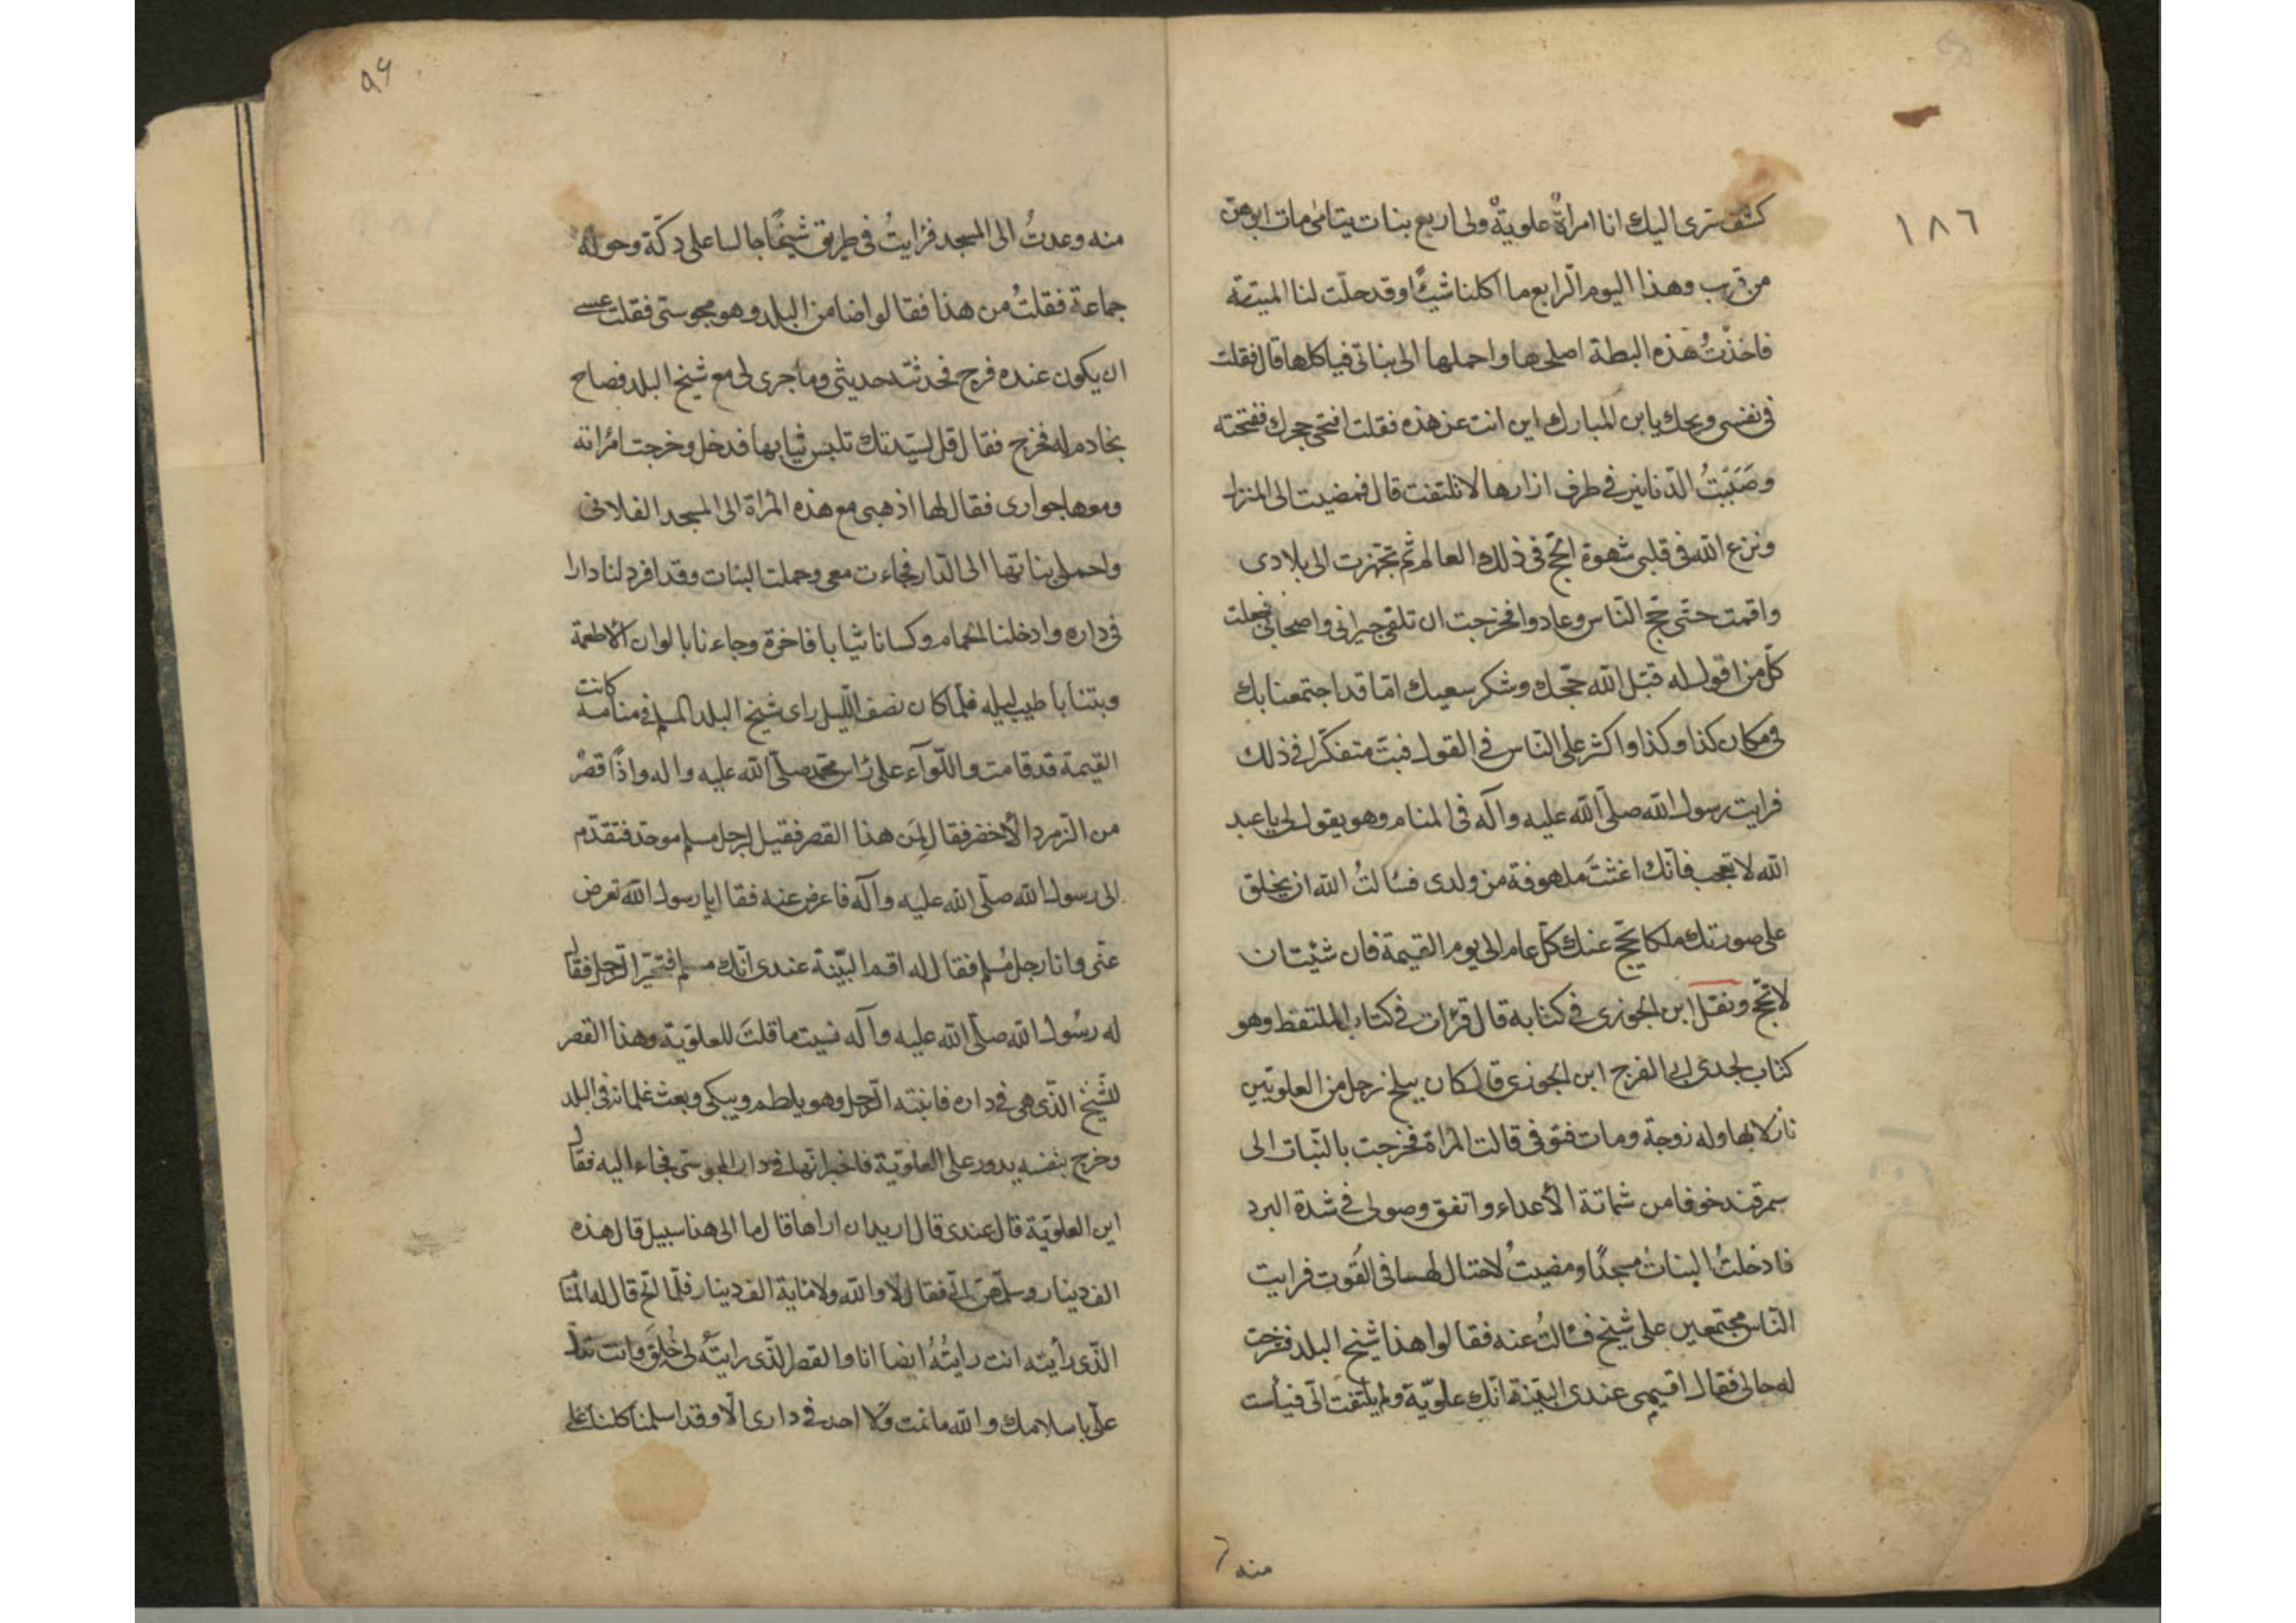 ١٨٦
كشف سرى اليك انا امراةٌ علويةٌ ولى اربع بنات يتامى مات ابوهنّ
من قريب وهذا اليوم الرابع ما اكلنا شيئًا وقد حلّت لنا الميتة
فاخذْتُ هذه البطة اصلحها واحملها الى بناتى فياكلها قال فقلت
فى نفسى ويحك يابن المبارك اين انت عن هذه فقلت افتحى حجرك ففتحته
وصَبَبْتُ الدّنانير فى طرف ازارها لا تلتفت قال فمضيت الى المنزل
ونزع الله فى قلبى شهوة الحجّ فى ذلك العالم ثم تجهّزت الى بلادى
واقمت حتّى حجّ النّاس وعادوا فخرجت ان تلقى جيرانى واصحابى فجعلت
كلّ من اقول له قبّل الله حجّك وشكر سعيك امّا قد اجتمعنا بك
فى مكان كذا وكذا واكثر علىّ النّاس فى القول فبتّ متفكّرا فى ذلك
فرايت رسول الله صلّى الله عليه وآله فى المنام وهو يقول لى يا عبد
الله لا تعجب فانّك اغثتَ ملهوفة من ولدى فسألتُ الله ان يخلق
على صورتك ملكا يحجّ عنك كلّ عام الى يوم القيمة فان شئت ان
لا تحجّ ونقل ابن الجوزى فى كتابه قال قرات فى كتاب الملتقط وهو
كتاب لجدى ابى الفرج ابن الجوزى قال كان ببلخ رجل من العلويّين
نازلا بها وله زوجة ومات فتوفى قالت المرأة فخرجت بالبنات الى
سمرقند خوفا من شماتة الأعداء واتفق وصولى فى شدة البرد
فادخلتُ البنات مسجدًا ومضيتُ لاحتال لهما فى القُوت فرايت
النّاس مجتمعين على شيخ فسالتُ عنه فقالوا هذا شيخ البلد فشرحت
له حالى فقال اقيمى عندى البيّنة انّك علويّة ولم يلتفت الىّ فيأست
منه
٩٤
منه وعدتُ الى المسجد فرايتُ فى طريق شيخًا جالسا على دكّة وحوله
جماعة فقلتُ من هذا فقالوا ضامن البلد وهو مجوسىّ فقلت عسى
ان يكون عنده فرج فحدثته حديثى وما جرى لى مع شيخ البلد فصاح
بخادم له فخرج فقال قل لسيّدتك تلبس ثيابها فدخل وخرجت امراته
ومعها جوارى فقال لها اذهبى مع هذه المراة الى المسجد الفلانى
واحملى بناتها الى الدّار فجاءت معى وحملت البنات وقد افرد لنا دارا
فى داره وادخلنا الحمام وكسانا ثيابا فاخرة وجاءنا بالوان الأطعمة
وبتنا باطيب ليله فلمّا كان نصف اللّيل راى شيخ البلد المسلم فى منامه كانت
القيمة قد قامت واللّوآء على رأس محمّد صلّى الله عليه واله واذًا قصْر
من الزمرد الأخضر فقال لِمَن هذا القصر فقيل لرجل مسلم موحّد فتقدّم
الى رسول الله صلّى الله عليه وآله فاعرض عنه فقال يا رسول الله تعرض
عنّى وانا رجل مُسلم فقال له اقم البيّنة عندى انّك مسلم فتحيّر الرّجل فقال
له رسُول الله صلّى الله عليه وآله نسيت ما قلتَ للعلويّة وهذا القصر
للشّيخ الذّى هى فى داره فانتبه الرّجل وهو يلطم ويبكى وبعث غلمانه فى البلد
وخرج بنفسه يدور على العلويّة فاخبر انها فى دار المجوسىّ فجاء اليه فقال
اين العلويّة قال عندى قال اريد ان اراها قال ما الى هنا سبيل قال هذه
الف دينار وسلّمهنّ الىّ فقال لا والله ولا ماية الف دينار فلّما الحّ قال له المنام
الذّى رأيته انت رايتُهُ ايضا انا والقصر الذّى رايتَه لى خُلِقَ وانت تدلّ
علىّ باسلامك والله ما نمت ولا احد فى دارى الّا وقد اسلمنا كلنا على